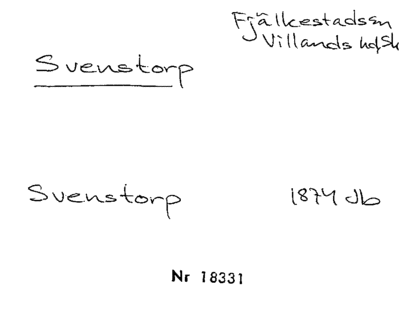 Fjälkestads sn
Villands hd, Sk
Svenstorp
Svenstorp 1874 Jb
Nr 18331